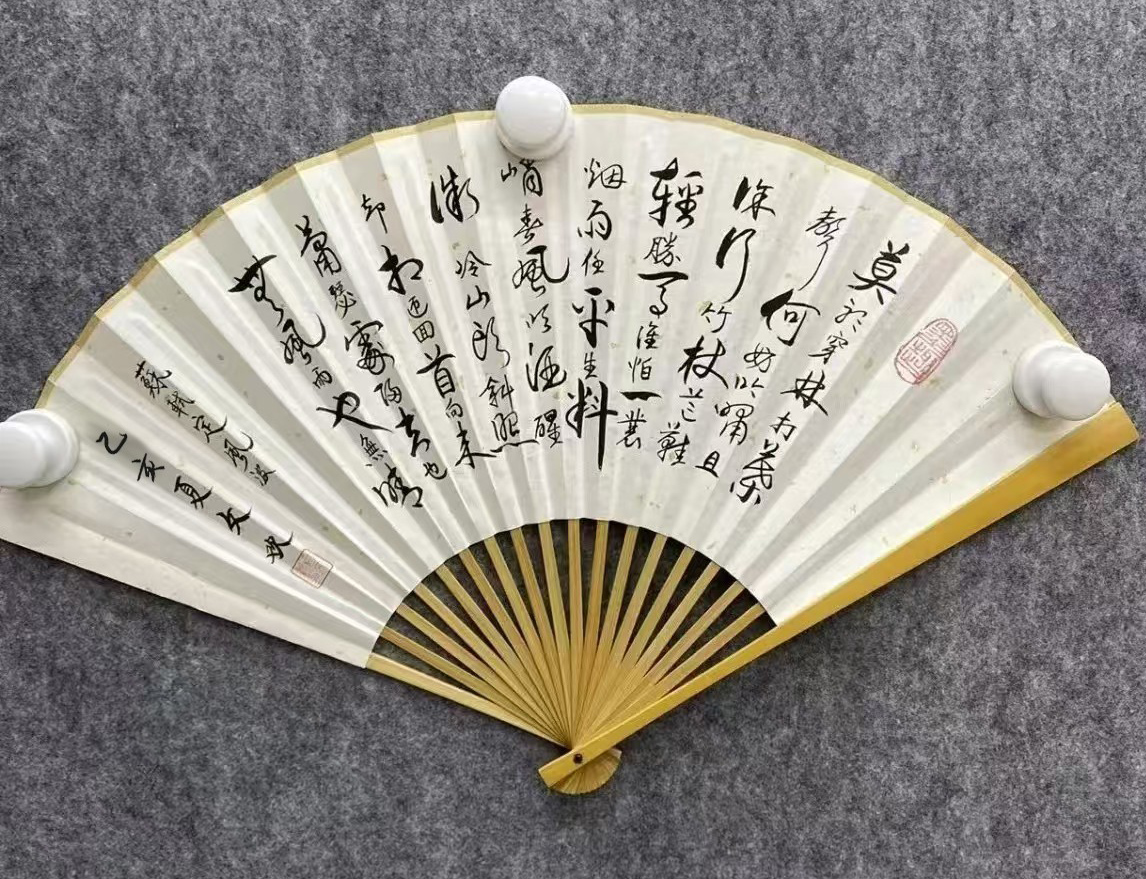 莫聽穿林打葉
聲何妨吟嘯且
徐行竹杖芒鞋
輕勝馬誰怕一蓑
烟雨任平生料
峭春風吹酒醒
微冷山頭斜照
却相迎回首向来
蕭瑟處歸去也
無風雨也無晴
蘇軾定風波
乙亥夏文